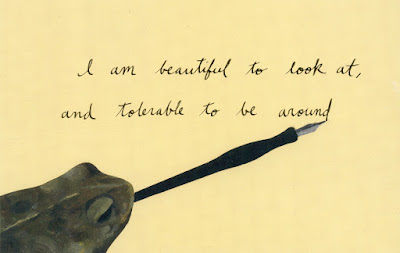 I am beautiful to look at,
and tolerable to be around